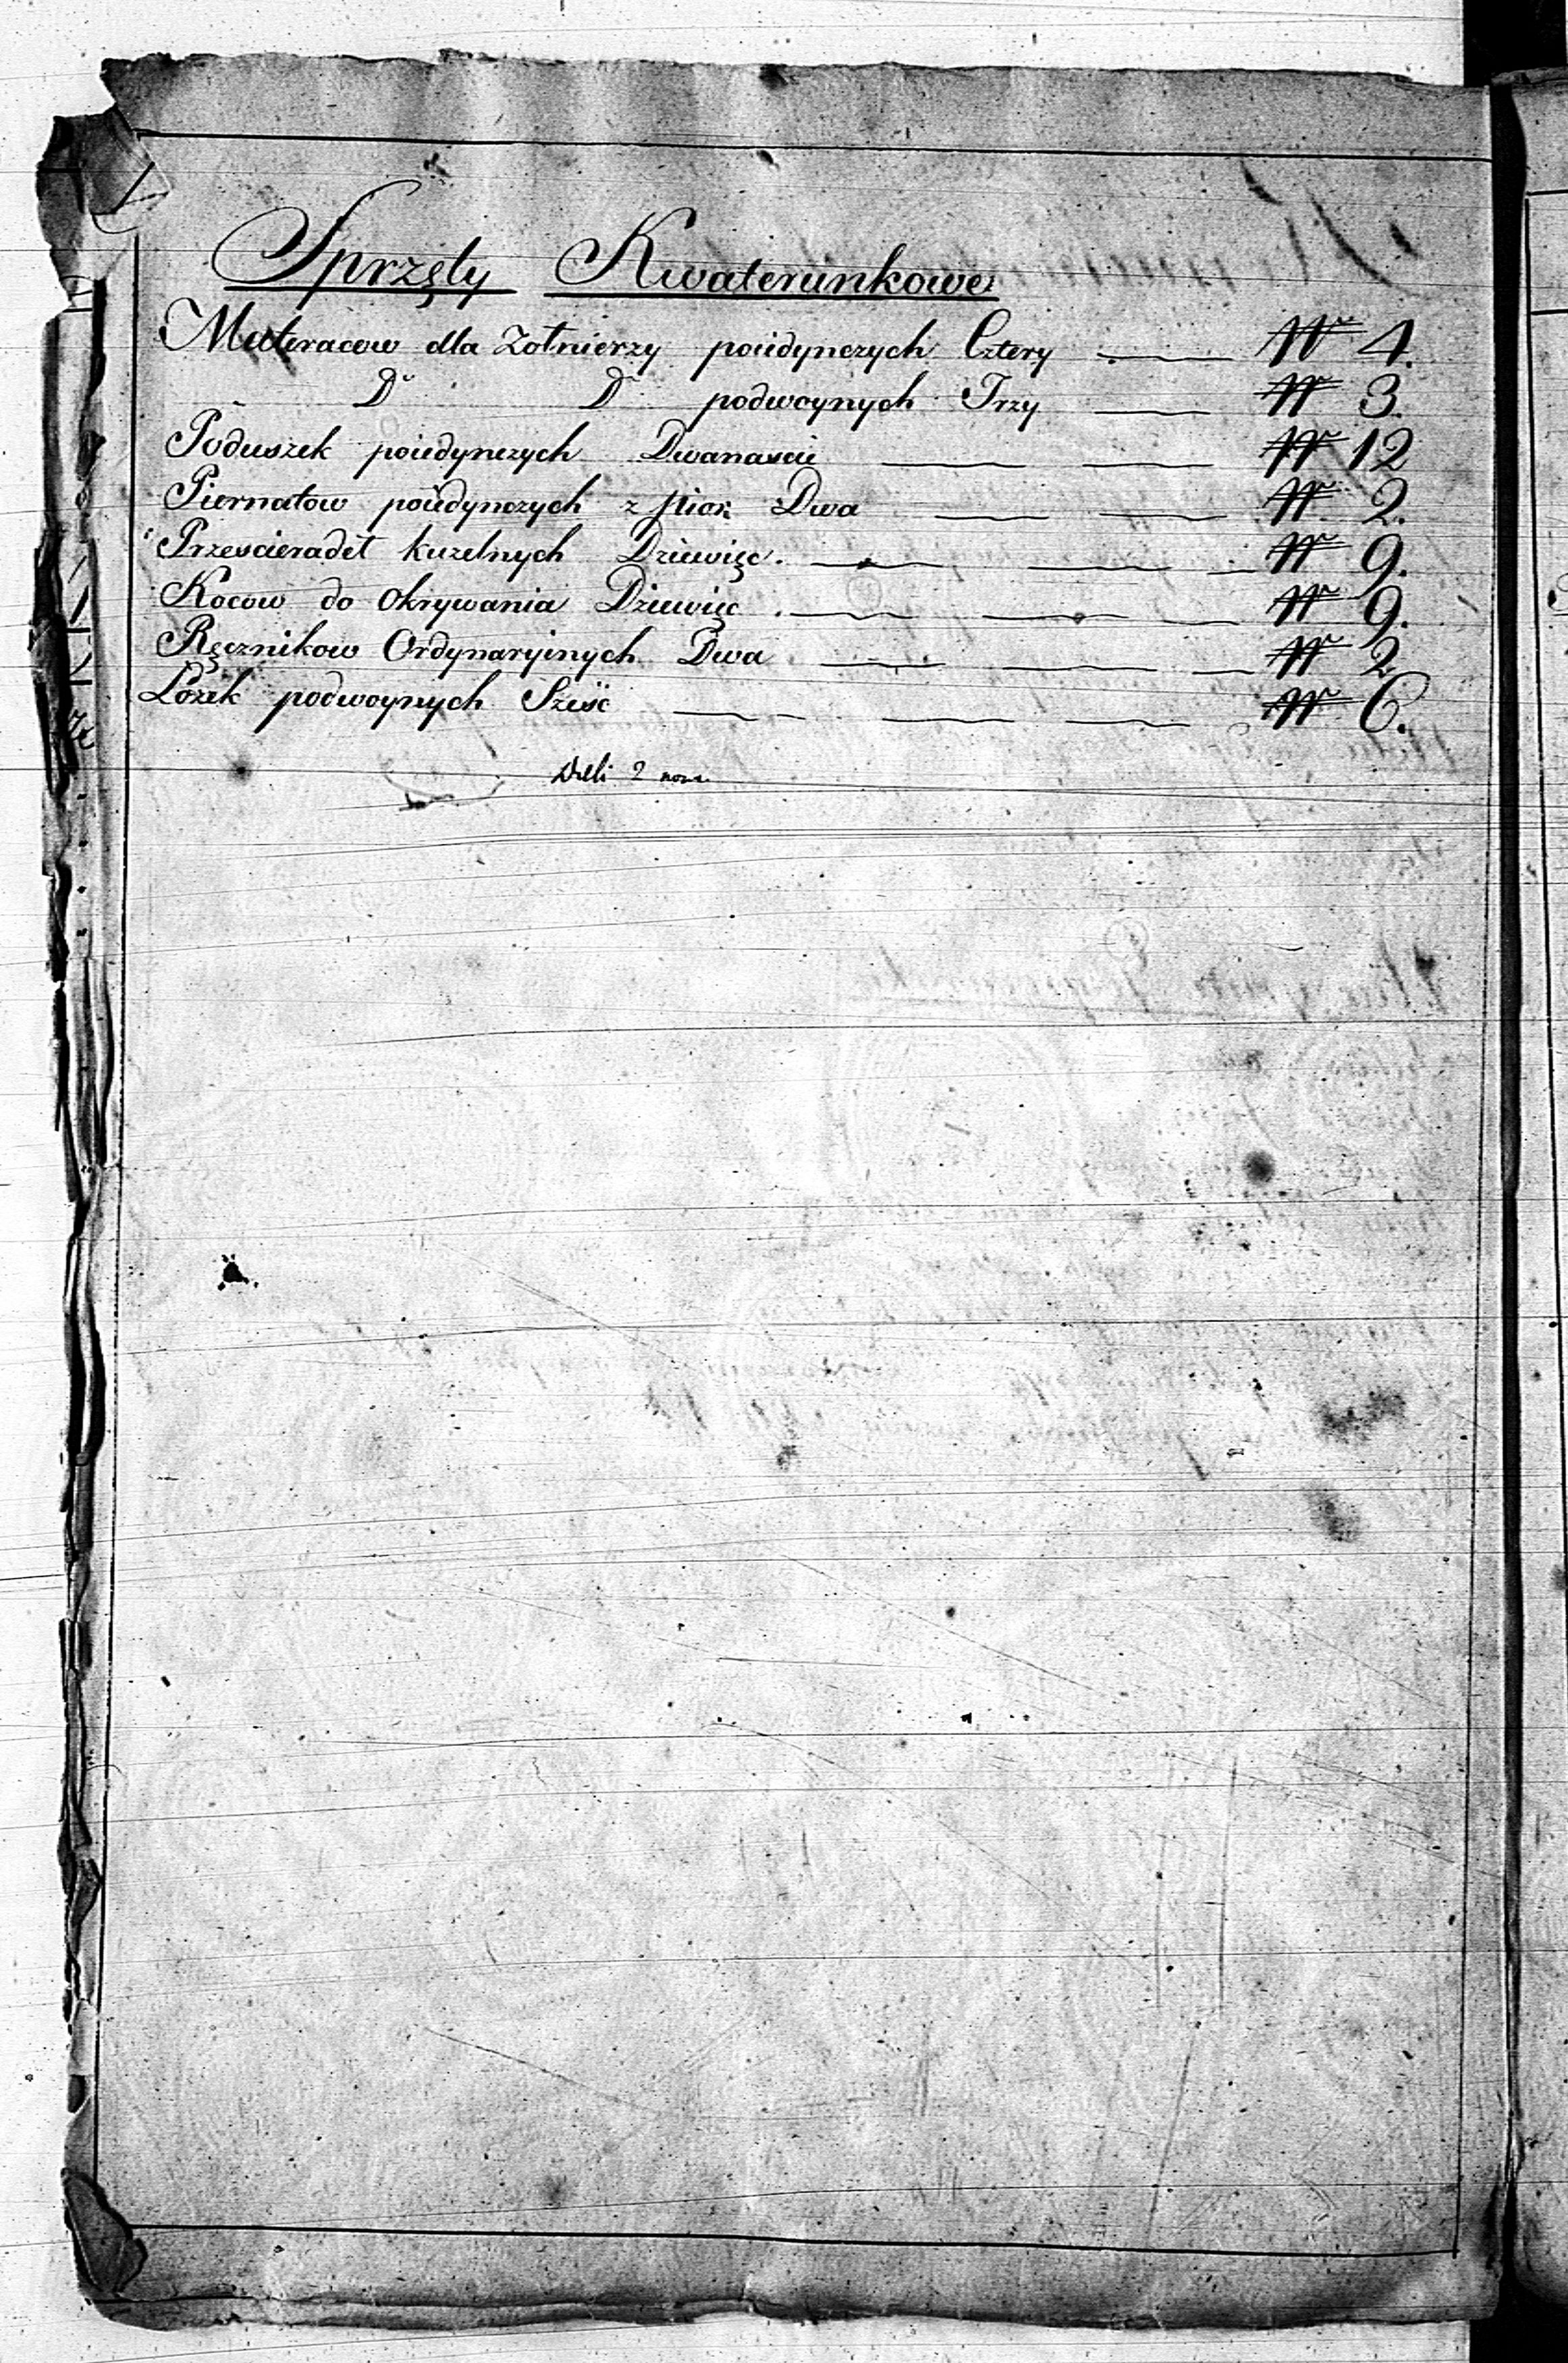 Sprzęty Kwaterunkowe
Materacow dla Zołnierzy poiedynczych Cztery Nr 4.
Do Do podwoynych Trzy Nr 3.
Poduszek poiedynczych Dwanascie Nr 12
Piernatow poiedynczych z pior Dwa Nr 2.
Przescieradeł kuzelnych Dziewięć. Nr 9.
Kocow do Okrywania Dziewięć. Nr 9.
Ręcznikow Ordynaryinych Dwa Nr 2
Łozek podwoynych Sześć Nr 6.